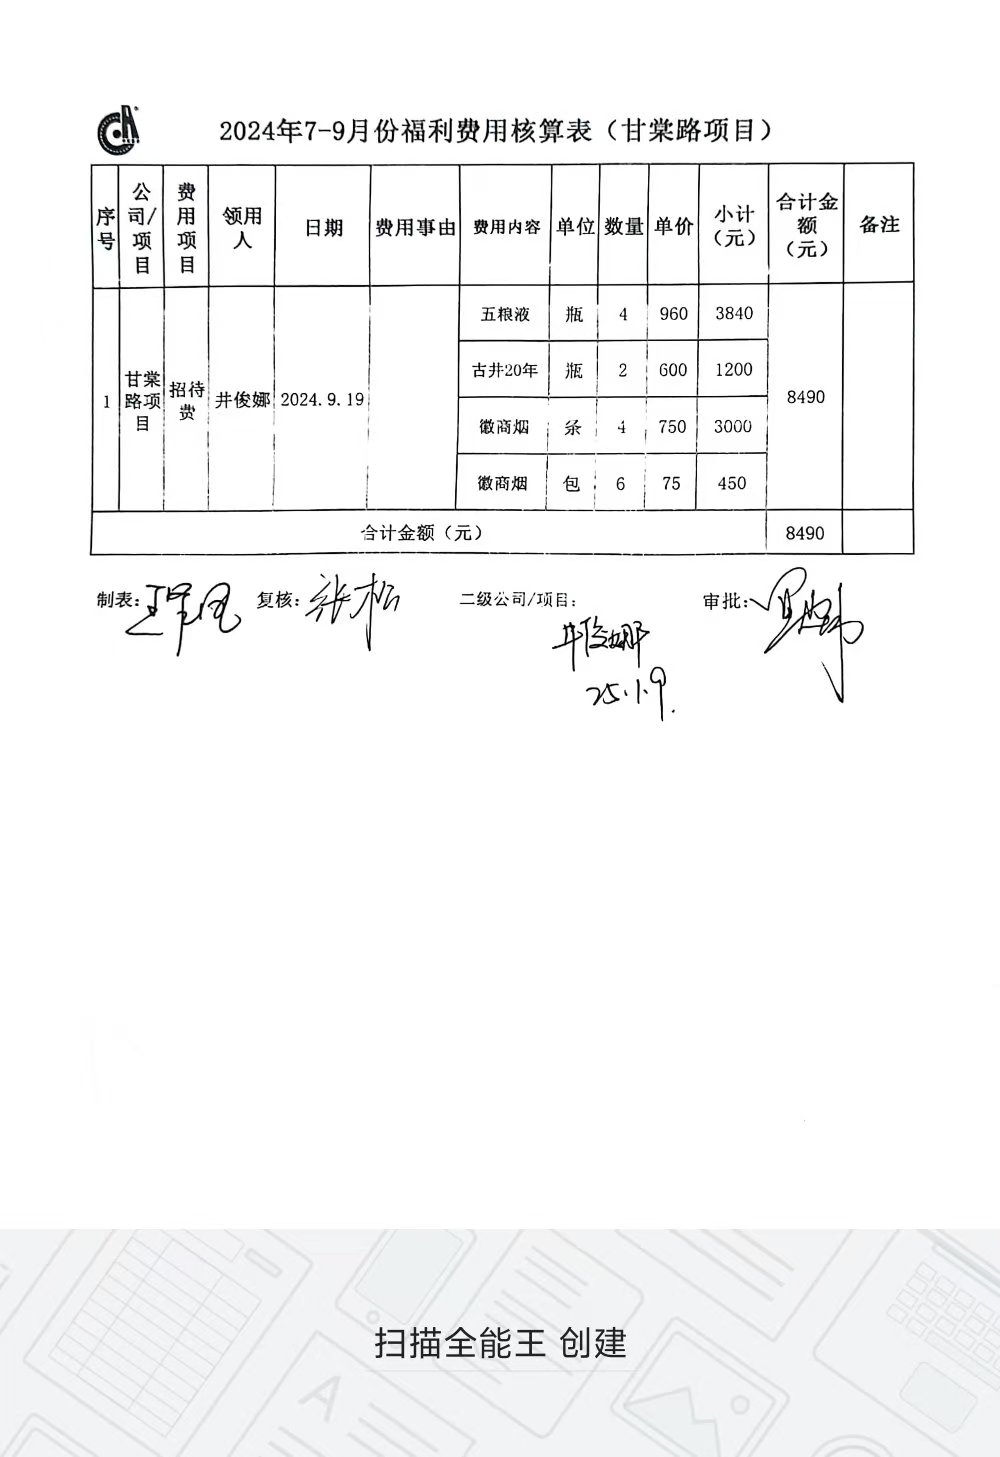 2024年7-9月份福利费用核算表（甘棠路项目）
序号 公司/项目 费用项目 领用人 日期 费用事由 费用内容 单位 数量 单价 小计（元） 合计金额（元） 备注
1 甘棠路项目 招待费 井俊娜 2024.9.19 五粮液 瓶 4 960 3840 8490
古井20年 瓶 2 600 1200
徽商烟 条 4 750 3000
徽商烟 包 6 75 450
合计金额（元） 8490
制表： 复核：张松 二级公司/项目： 审批：
井俊娜
25.1.9.
扫描全能王 创建